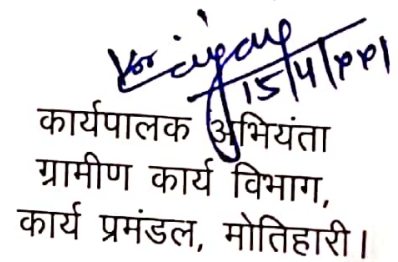 15/4/
कार्यपालक अभियंता
ग्रामीण कार्य विभाग,
कार्य प्रमंडल, मोतिहारी।